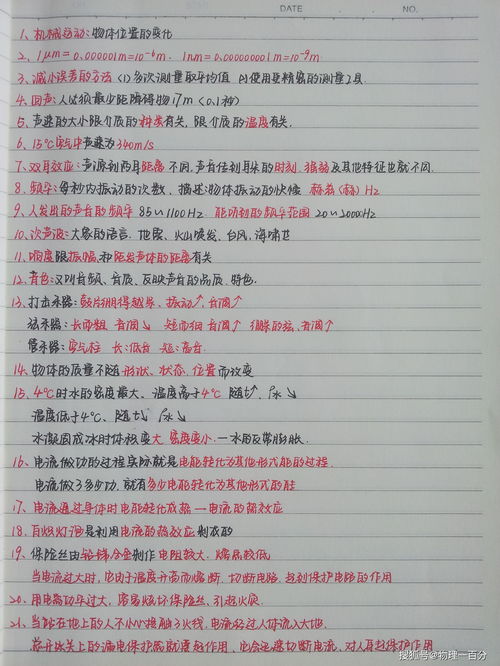 DATE NO.
1、机械运动:物体位置的变化
2、1μm=0.000001m=10⁻⁶m. 1nm=0.000000001m=10⁻⁹m
3、减小误差的方法 (1)多次测量取平均值 (2)使用更精密的测量工具.
4、回声:人必须最少距障碍物17m (0.1秒)
5、声速的大小跟介质的种类有关,跟介质的温度有关.
6、15℃空气中声速为340m/s
7、双耳效应:声源到两耳距离不同,声音传到耳朵的时刻、强弱及其他特征也就不同.
8、频率:每秒内振动的次数、描述:物体振动的快慢 赫兹(赫) Hz
9、人发出的声音的频率 85~1100Hz 能听到的频率范围 20~20000Hz
10、次声波:大象的语言. 地震、火山喷发、台风、海啸等
11、响度跟振幅,和距发声体的距离有关
12、音色:又叫音频、音质、反映声音的品质、特色.
13、打击乐器:鼓片绷得越紧、振动↑,音调↑
弦乐器:长而粗 音调↘ 短而细 音调↑ 绷紧的弦、音调↑
管乐器:空气柱 长:低音 短:高音.
14、物体的质量不随形状、状态、位置而改变
15、4℃时水的密度最大、温度高于4℃ 随t↑ ρ水↘
温度低于4℃、随t↓ ρ水↘
水凝固成冰时体积变大 密度变小.一水的反常膨胀.
16、电流做功的过程实际就是电能转化为其他形式能的过程.
电流做了多少功、就有多少电能转化为其他形式的能
17、电流通过导体时电能转化成热一电流的热效应
18、白炽灯泡是利用电流的热效应制成的
19、保险丝由铅锑合金制作 电阻较大、熔点较低
当电流过大时,它由于温度升高而熔断、切断电路、起到保护电路的作用
20、用电器功率过大、容易烧坏保险丝、引起火灾.
21、当站在地上的人不小心接触了火线,电流经过人体流入大地.
总开关上的漏电保护器就要起作用、它会迅速切断电流、对人起保护作用
搜狐号@物理一百分